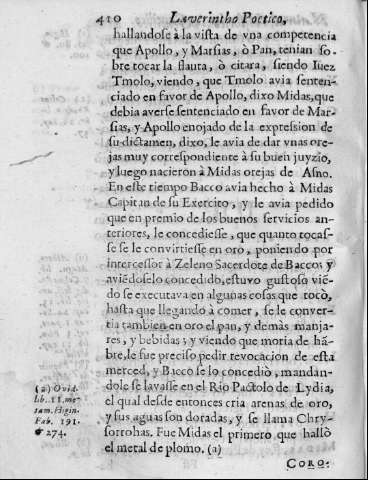 410 Laverintho Poetico,
hallandose à la vista de vna competencia
que Apollo, y Marsias, ò Pan, tenian so
bre tocar la flauta, ò citara, siendo Iuez
Tmolo, viendo, que Tmolo avia senten-
ciado en favor de Apollo, dixo Midas, que
debia averse sentenciado en favor de Mar-
sias, y Apollo enojado de la expression de
su dictamen, dixo, le avia de dar vnas ore-
jas muy correspondiente à su buen juyzio,
y luego nacieron à Midas orejas de Asno.
En este tiempo Bacco avia hecho à Midas
Capitan de su Exercito, y le avia pedido
que en premio de los buenos servicios an-
teriores, le concediesse, que quanto tocas-
se se le convirtiesse en oro, poniendo por
intercessor à Zeleno Sacerdote de Baccos y
aviédoselo concedido, estuvo gustoso vié-
do se executava en algunas cosas que tocò,
hasta que llegando à comer, se le conver-
tia tambien en oro el pan, y demàs manja-
res, y bebidas; y viendo que moria de há-
bre, le fue preciso pedir revocacion de esta
merced, y Bacco se lo concediò, mandan-
dole se lavasse en el Rio Pactolo de Lydia,
el qual desde entonces cria arenas de oro,
y sus aguas son doradas, y se llama Chry-
sorrohas. Fue Midas el primero que hallò
el metal de plomo. (a)
(a) Ovid.
lib. 11. me-
tam. Higin.
Fab. 191.
& 274.
CORO: